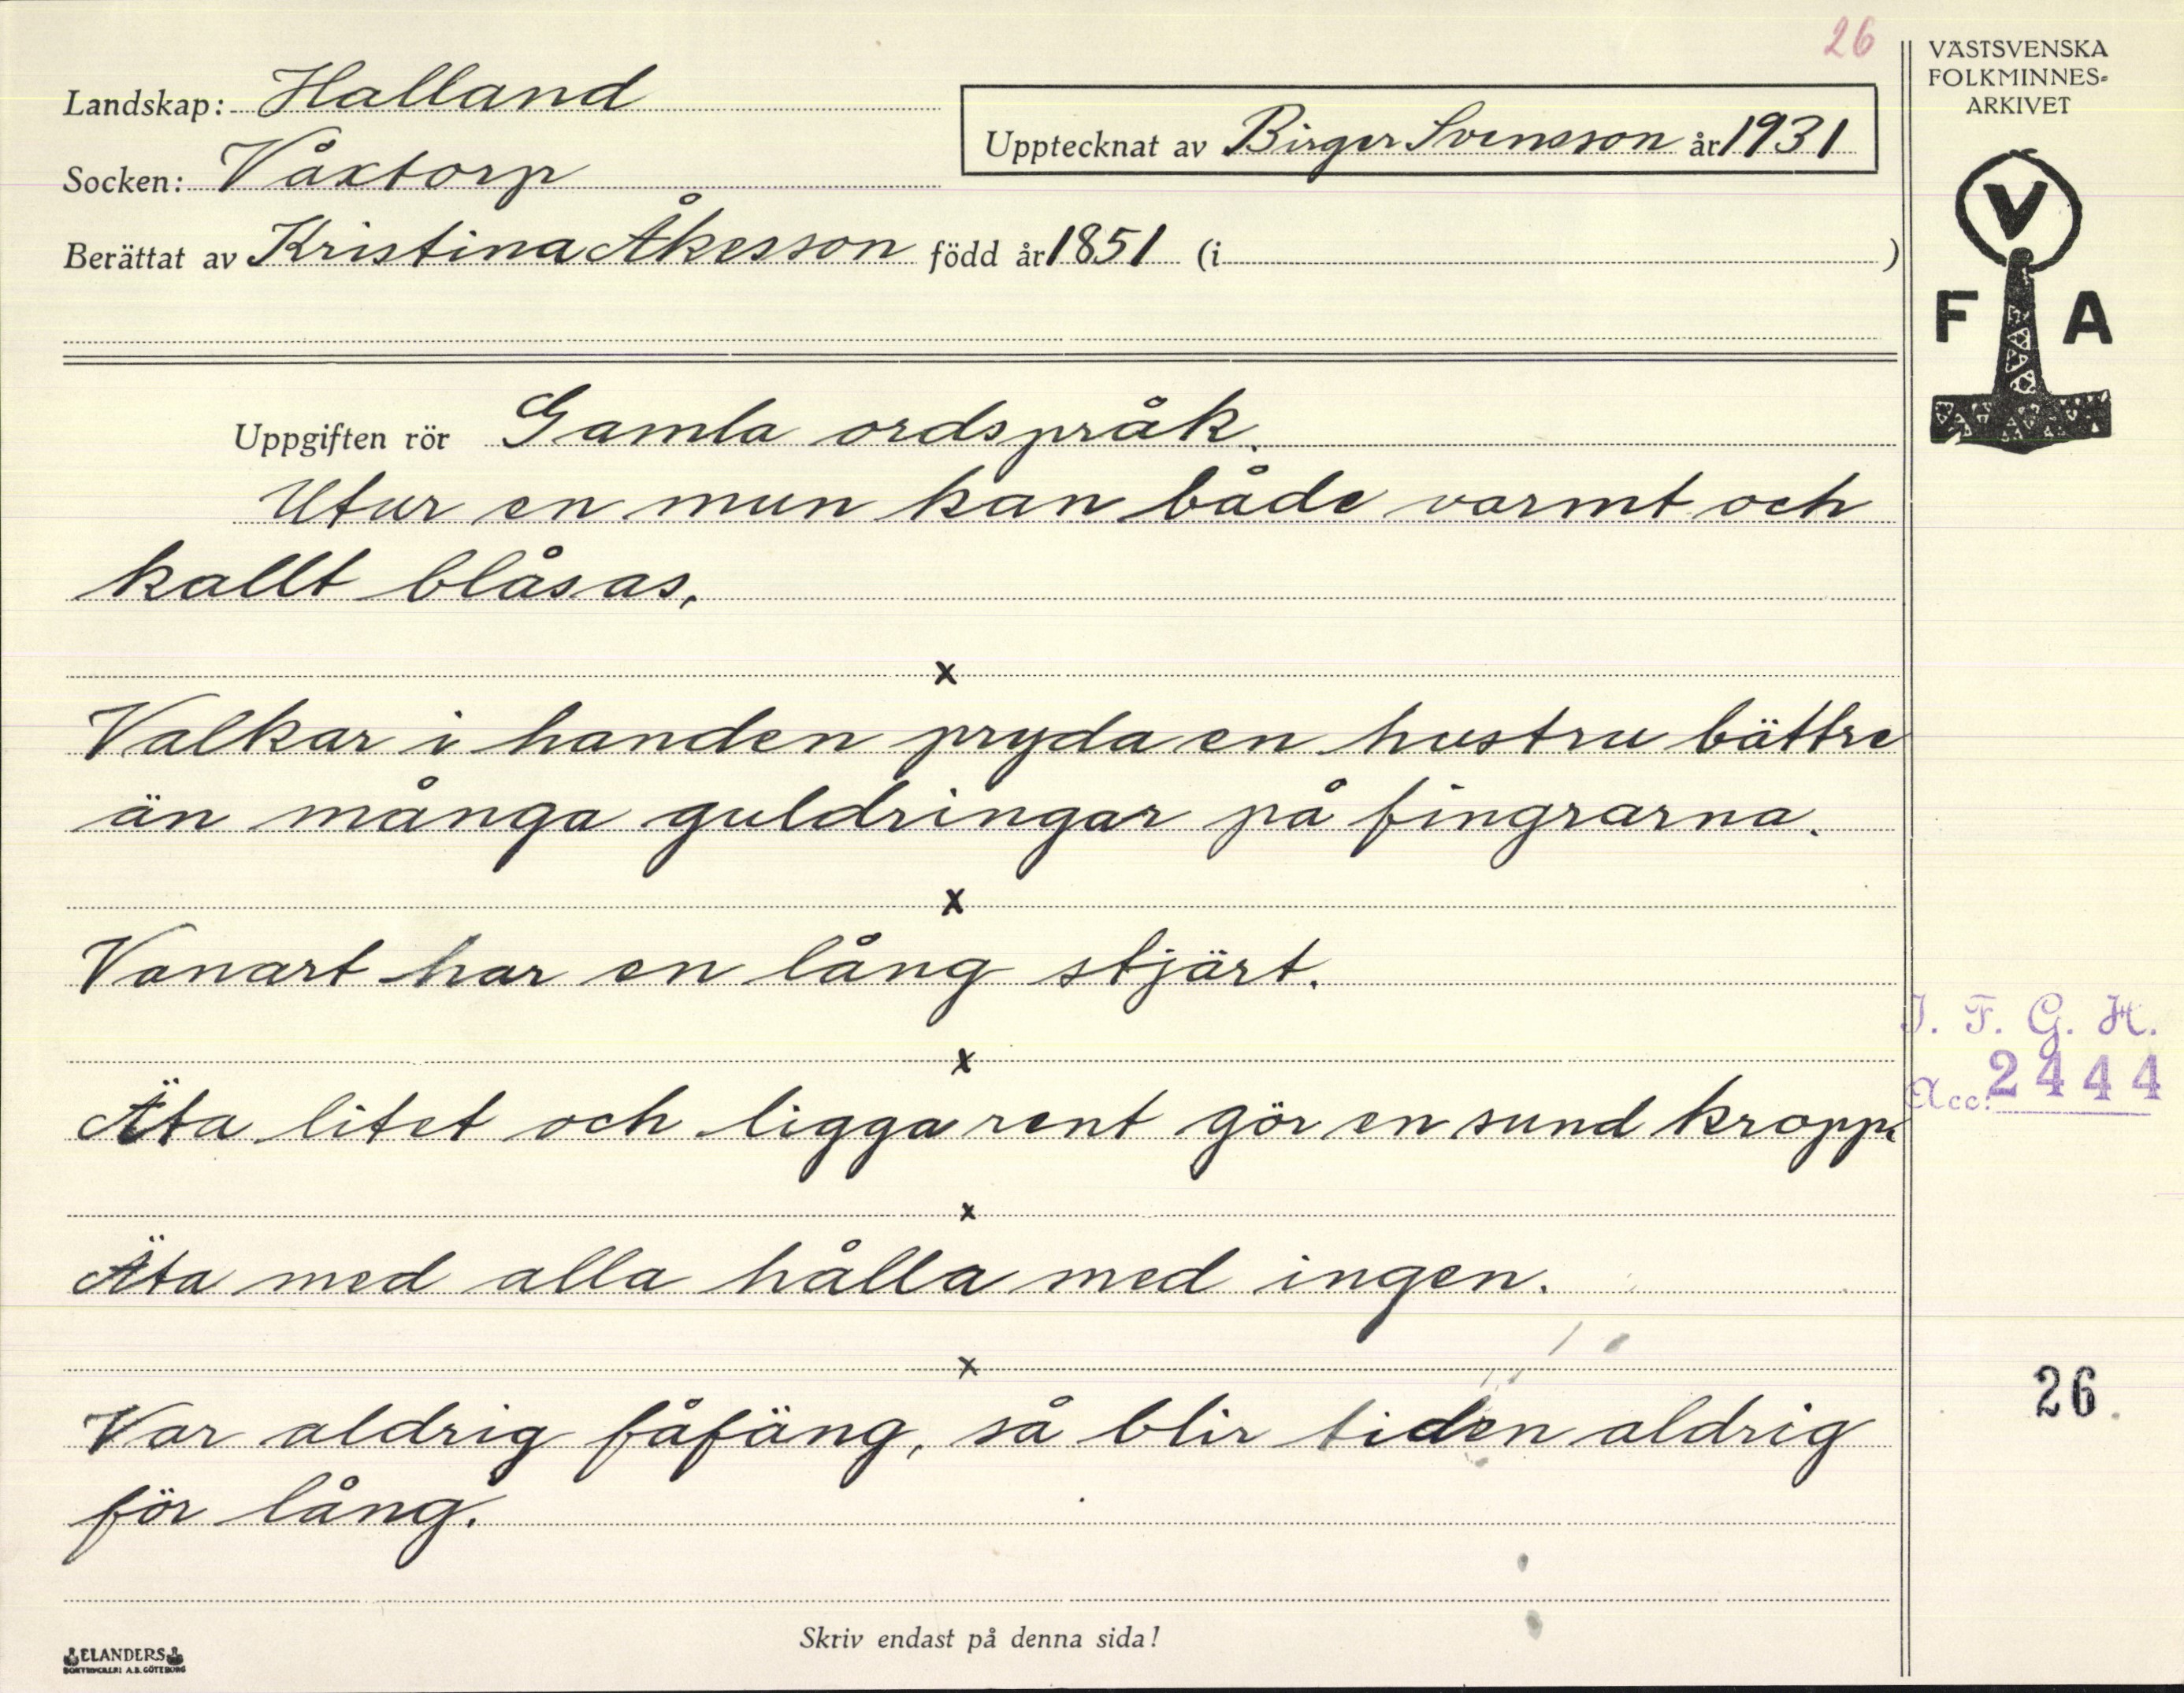 26
VÄSTSVENSKA
FOLKMINNES-
ARKIVET
Landskap: Halland
Upptecknat av Birger Svensson år 1931
Socken: Våxtorp
Berättat av Kristina Åkesson född år 1851 (i )
V
F A
Uppgiften rör Gamla ordspråk.
Utur en mun kan både varmt och
kallt blåsas.
x
Valkar i handen pryda en hustru bättre
än många guldringar på fingrarna.
x
Vanart har en lång stjärt.
x
I. F. G. H.
Acc. 2444
Äta litet och ligga rent gör en sund kropp.
x
Äta med alla hålla med ingen.
x
26
Var aldrig fåfäng, så blir tiden aldrig
för lång.
Skriv endast på denna sida!
ELANDERS
BOKTRYCKERI A.B. GÖTEBORG